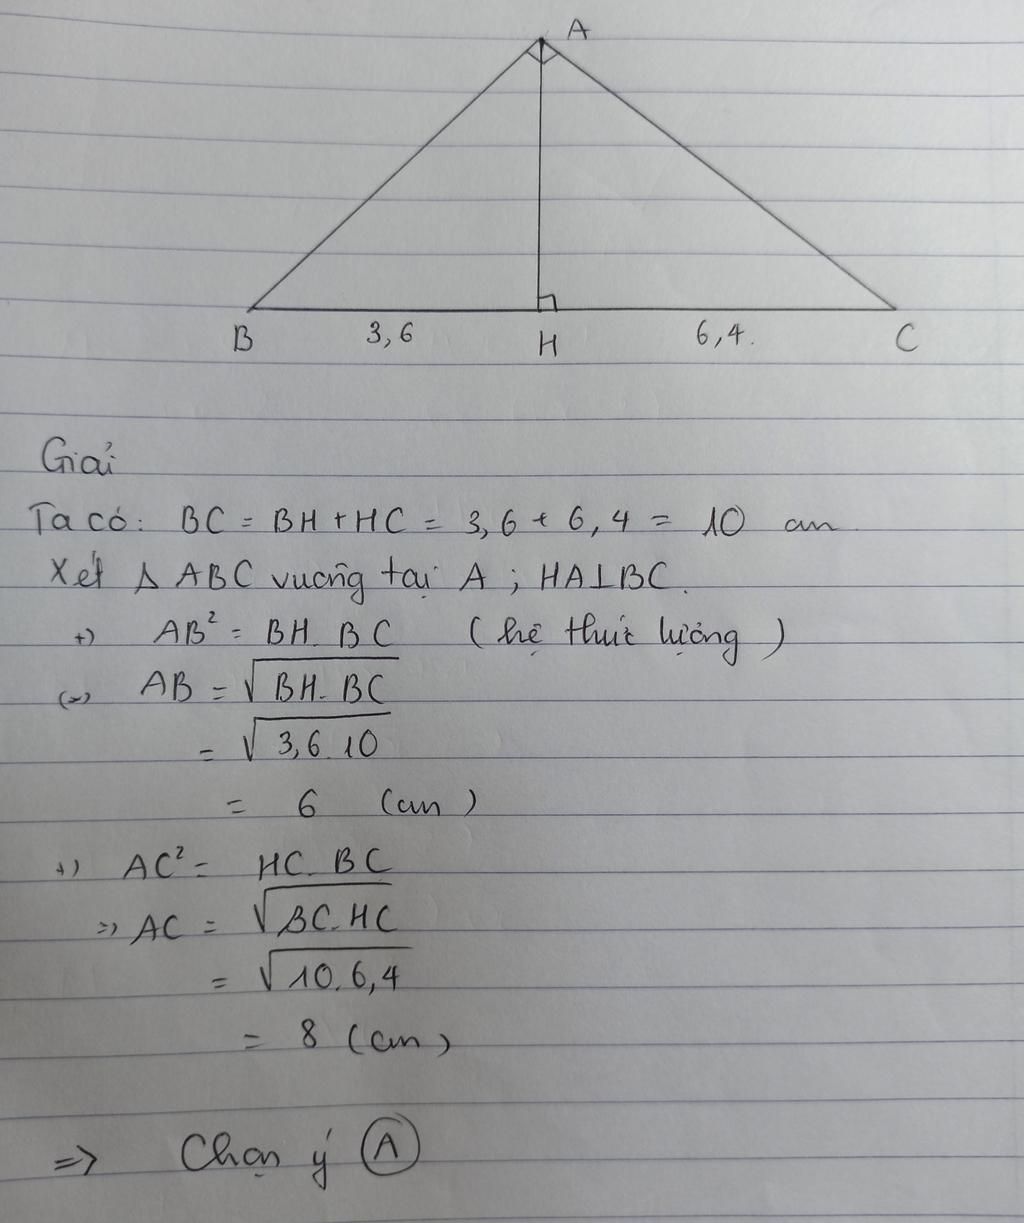 A
B 3,6 H 6,4. C
Giải
Ta có: BC = BH + HC = 3,6 + 6,4 = 10 cm
Xét Δ ABC vuông tại A ; HA⊥BC.
+) AB² = BH. BC (hệ thức lượng)
(=) AB = √BH. BC
= √3,6.10
= 6 (cm)
+) AC² = HC. BC
=) AC = √BC. HC
= √10.6,4
= 8 (cm)
=> Chọn ý A